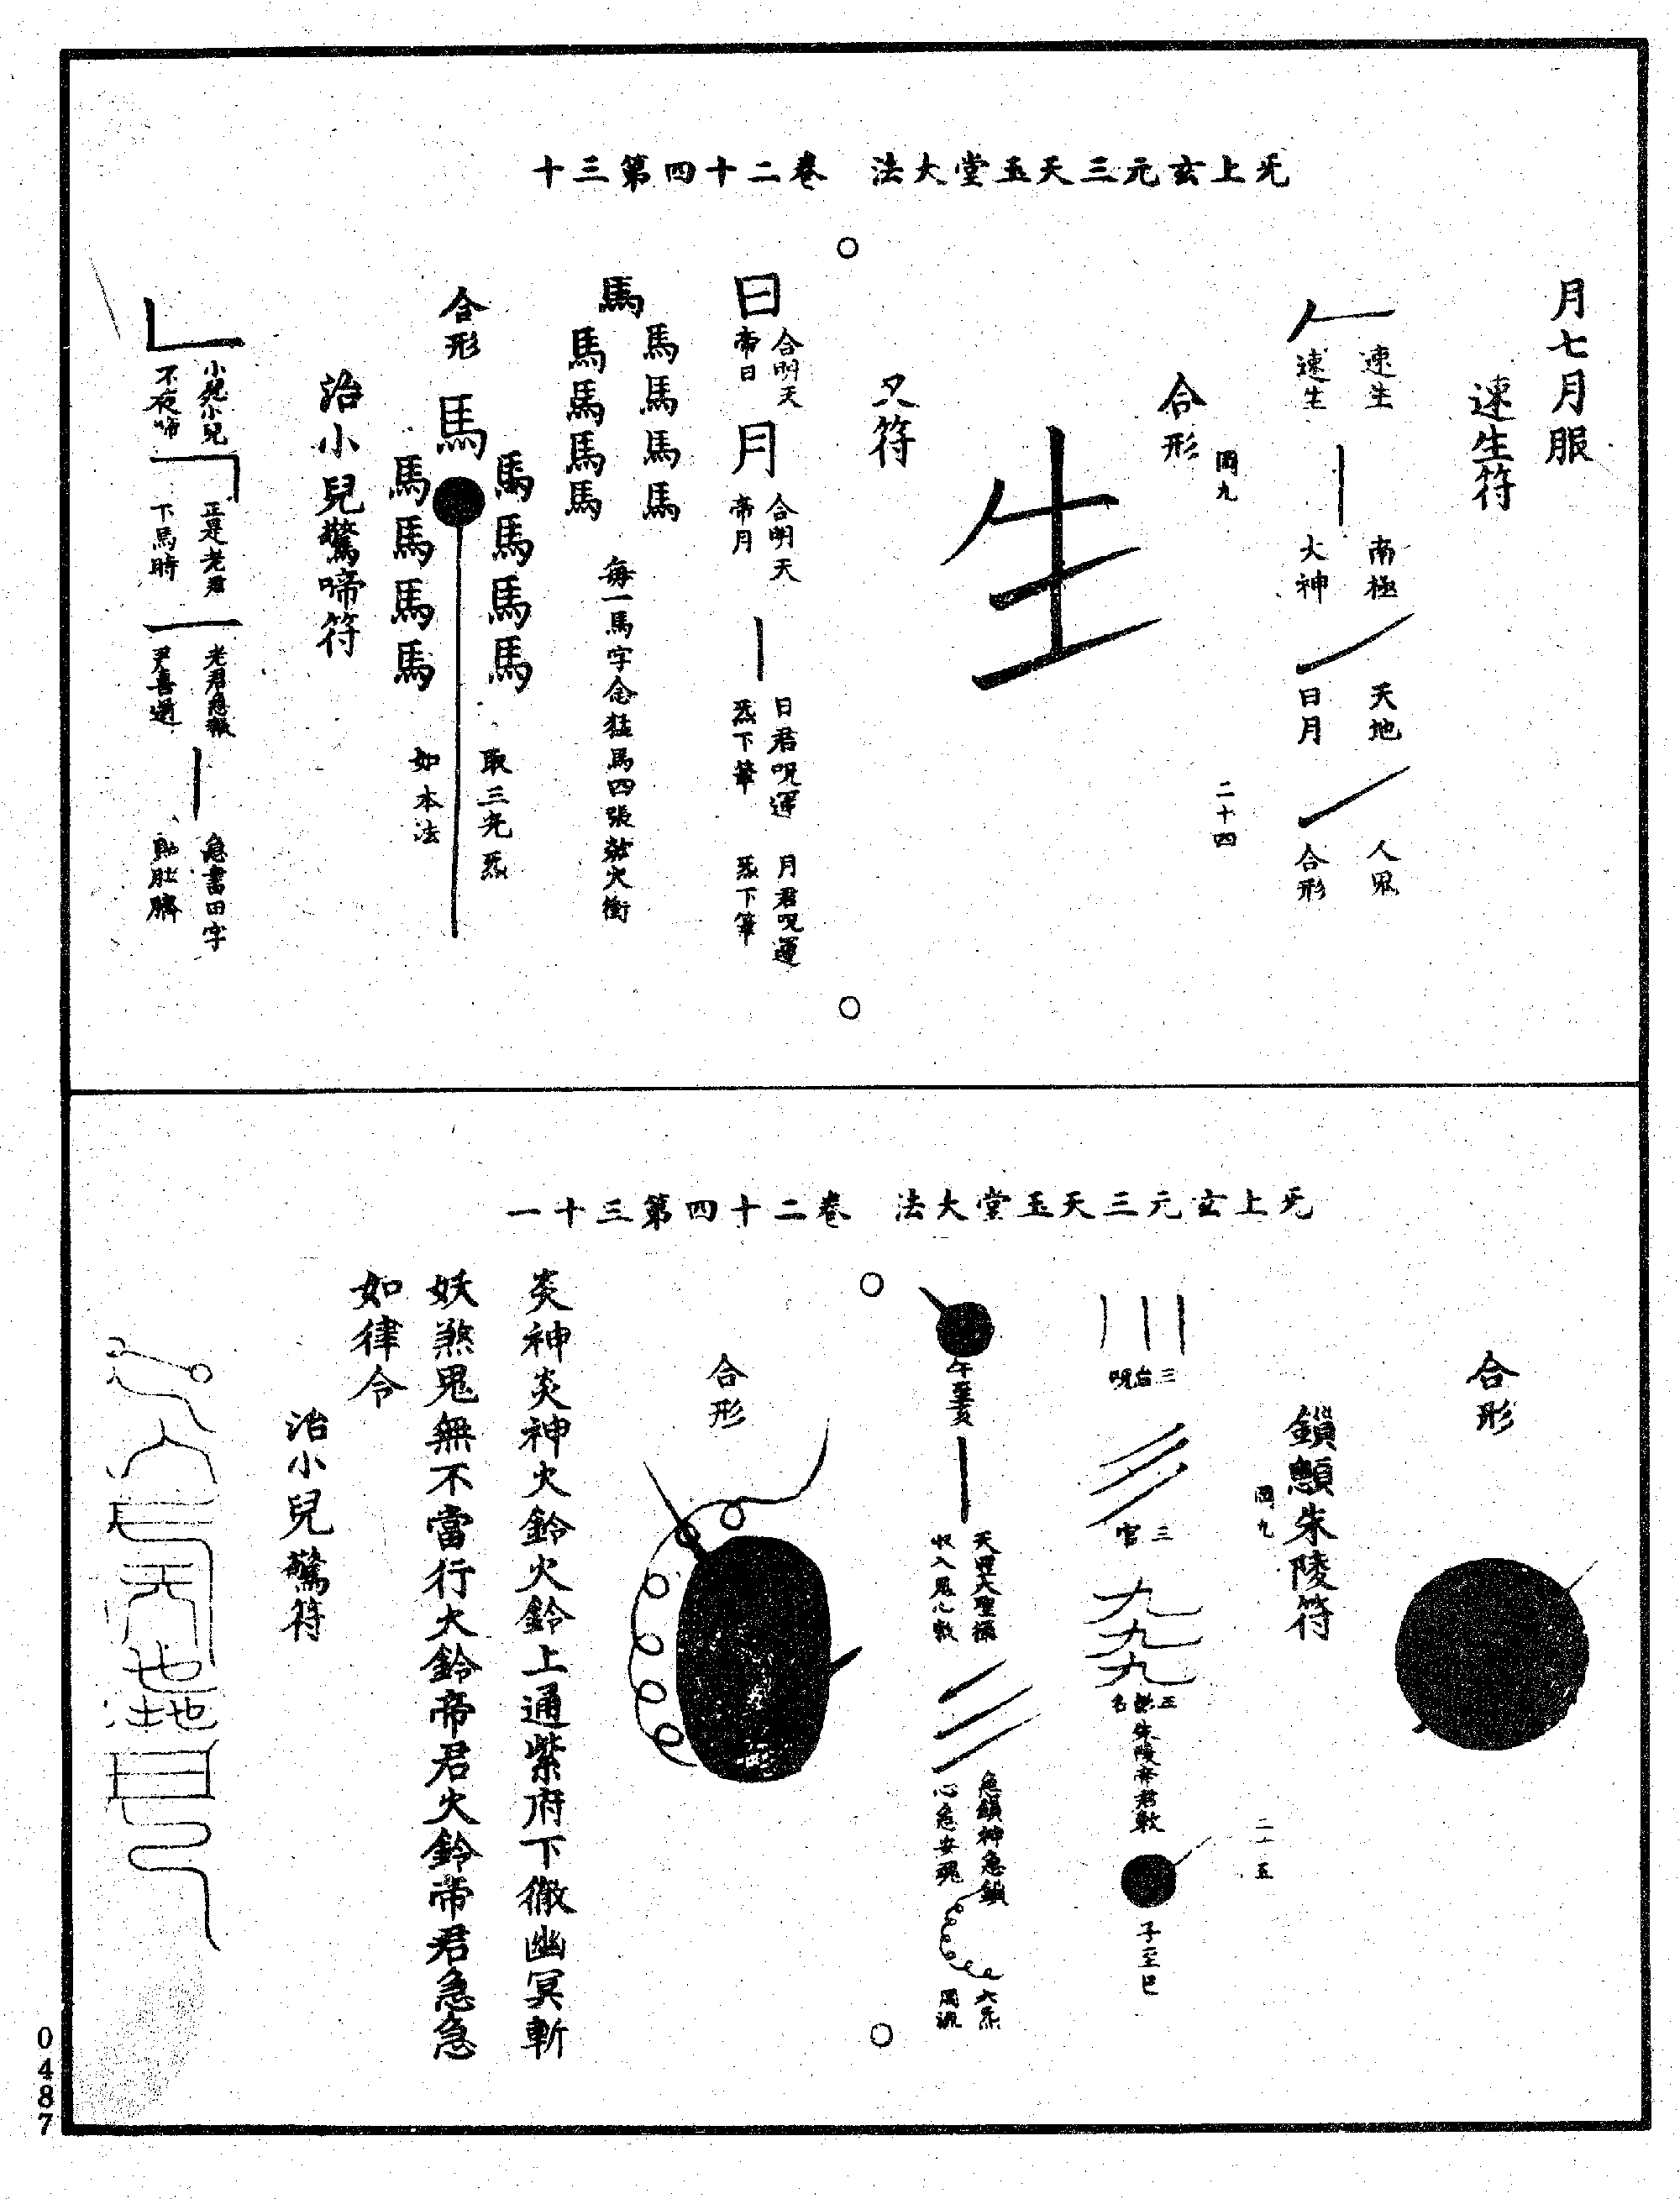 无上玄元三天玉堂大法　卷二十四第三十
月七月服
速生符
速生
速生
南極
大神
天地
日月
人鬼
合形
岡九
二十四
合形
生
又符
日
合明天
帝日
月
合明天
帝月
日君呪運
炁下筆
月君呪運
炁下筆
馬
馬馬馬馬
馬馬馬馬
每一馬字念猛馬四張
火衝
合形
馬
馬馬馬馬
馬馬馬馬
取三光炁
如本法
治小兒驚啼符
小兒小兒
不夜啼
正是老君
下馬時
老君急
尹喜過
急書田字
貼肚臍
无上玄元三天玉堂大法　卷二十四第三十一
合形
鎖顛朱陵符
岡九
二十五
三台呪
三官
九九九
朱陵帝君敕
子至巳
午至亥
天罡大聖攝
收入鬼心
急鎖神急鎖
心急安魂
六炁
周流
合形
炎神炎神火鈴火鈴上通紫府下徹幽冥斬
妖煞鬼無不當行火鈴帝君火鈴帝君急急
如律令
治小兒驚符
0487